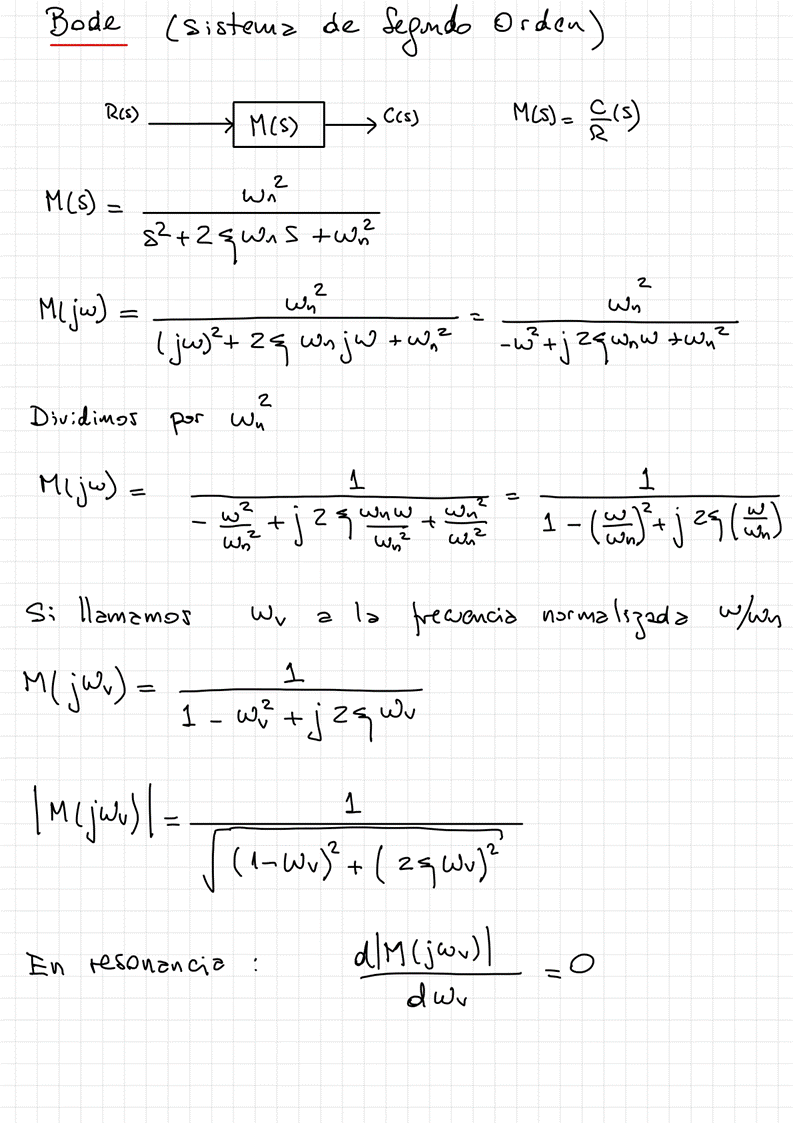 Bode (Sistema de Segundo Orden)
R(s) → M(s) → C(s) M(s) = C/R (s)
M(s) = ωn² / (s² + 2ξωn s + ωn²)
M(jω) = ωn² / ((jω)² + 2ξ ωn jω + ωn²) = ωn² / (-ω² + j2ξωnω + ωn²)
Dividimos por ωn²
M(jω) = 1 / (- ω²/ωn² + j 2ξ ωnω/ωn² + ωn²/ωn²) = 1 / (1 - (ω/ωn)² + j 2ξ(ω/ωn))
Si llamamos ωv a la frecuencia normalizada ω/ωn
M(jωv) = 1 / (1 - ωv² + j 2ξ ωv)
|M(jωv)| = 1 / √((1-ωv)² + (2ξωv)²)
En resonancia : d|M(jωv)| / dωv = 0